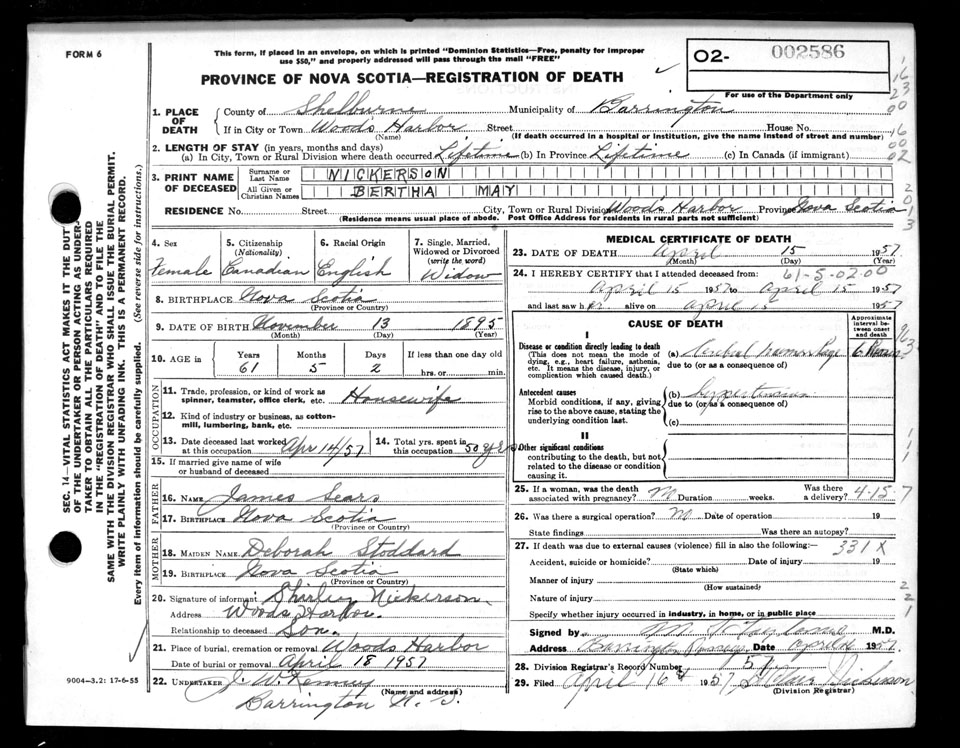 FORM 6
This form, if placed in an envelope, on which is printed "Dominion Statistics—Free, penalty for improper
use $50," and properly addressed will pass through the mail "FREE"
O2- 002586
For use of the Department only
PROVINCE OF NOVA SCOTIA—REGISTRATION OF DEATH
1. PLACE OF DEATH County of Shelburne Municipality of Barrington
If in City or Town Wood's Harbor Street House No.
(Name) (If death occurred in a hospital or institution, give the name instead of street and number)
2. LENGTH OF STAY (in years, months and days)
(a) In City, Town or Rural Division where death occurred Lifetime (b) In Province Lifetime (c) In Canada (if immigrant)
3. PRINT NAME OF DECEASED Surname or Last Name NICKERSON
All Given or Christian Names BERTHA MAY
RESIDENCE No. Street City, Town or Rural Division Wood's Harbor Province Nova Scotia
(Residence means usual place of abode. Post Office Address for residents in rural parts not sufficient)
4. Sex Female
5. Citizenship (Nationality) Canadian
6. Racial Origin English
7. Single, Married, Widowed or Divorced (write the word) Widow
8. BIRTHPLACE Nova Scotia
(Province or Country)
9. DATE OF BIRTH November 13 1895
(Month) (Day) (Year)
10. AGE in Years Months Days If less than one day old
61 5 2 hrs. or min.
OCCUPATION
11. Trade, profession, or kind of work as spinner, teamster, office clerk, etc. Housewife
12. Kind of industry or business, as cotton-mill, lumbering, bank, etc.
13. Date deceased last worked at this occupation Apr 14/57
14. Total yrs. spent in this occupation 50 yrs
15. If married give name of wife or husband of deceased
FATHER
16. NAME James Sears
17. BIRTHPLACE Nova Scotia
(Province or Country)
MOTHER
18. MAIDEN NAME Deborah Stoddard
19. BIRTHPLACE Nova Scotia
(Province or Country)
20. Signature of informant Shirley Nickerson
Address Woods Harbor.
Relationship to deceased Son.
21. Place of burial, cremation or removal Woods Harbor
Date of burial or removal April 18 1957
22. UNDERTAKER J. W. Kenney
(Name and address)
Barrington N. S.
MEDICAL CERTIFICATE OF DEATH
23. DATE OF DEATH April 15 1957
(Month) (Day) (Year)
24. I HEREBY CERTIFY that I attended deceased from: 61-5-02-00
April 15 1957 to April 15 1957
and last saw her alive on April 15 1957
CAUSE OF DEATH
Approximate interval between onset and death
I
Disease or condition directly leading to death
(This does not mean the mode of dying, e.g., heart failure, asthenia, etc. It means the disease, injury, or complication which caused death.)
(a) Cerebral Hemorrhage 6 Hours
due to (or as a consequence of)
Antecedent causes
Morbid conditions, if any, giving rise to the above cause, stating the underlying condition last.
(b) hypertension
due to (or as a consequence of)
(c)
II
Other significant conditions
contributing to the death, but not related to the disease or condition causing it.
25. If a woman, was the death associated with pregnancy? Duration weeks. Was there a delivery? 4-15-7
26. Was there a surgical operation? Date of operation 19
State findings Was there an autopsy?
27. If death was due to external causes (violence) fill in also the following:— 331X
Accident, suicide or homicide? Date of injury 19
(State which)
Manner of injury
(How sustained)
Nature of injury
Specify whether injury occurred in industry, in home, or in public place
Signed by M.D.
Address Barrington Passage Date April 1957
28. Division Registrar's Record Number 157
29. Filed April 16th 1957 Nickerson
(Division Registrar)
SEC. 14—VITAL STATISTICS ACT MAKES IT THE DUTY
OF THE UNDERTAKER OR PERSON ACTING AS UNDER-
TAKER TO OBTAIN ALL THE PARTICULARS REQUIRED
IN THE "REGISTRATION OF DEATH" AND TO FILE THE
SAME WITH THE DIVISION REGISTRAR WHO SHALL ISSUE THE BURIAL PERMIT.
WRITE PLAINLY WITH UNFADING INK. THIS IS A PERMANENT RECORD.
Every item of information should be carefully supplied. (See reverse side for instructions.)
9004—3.2: 17-6-55